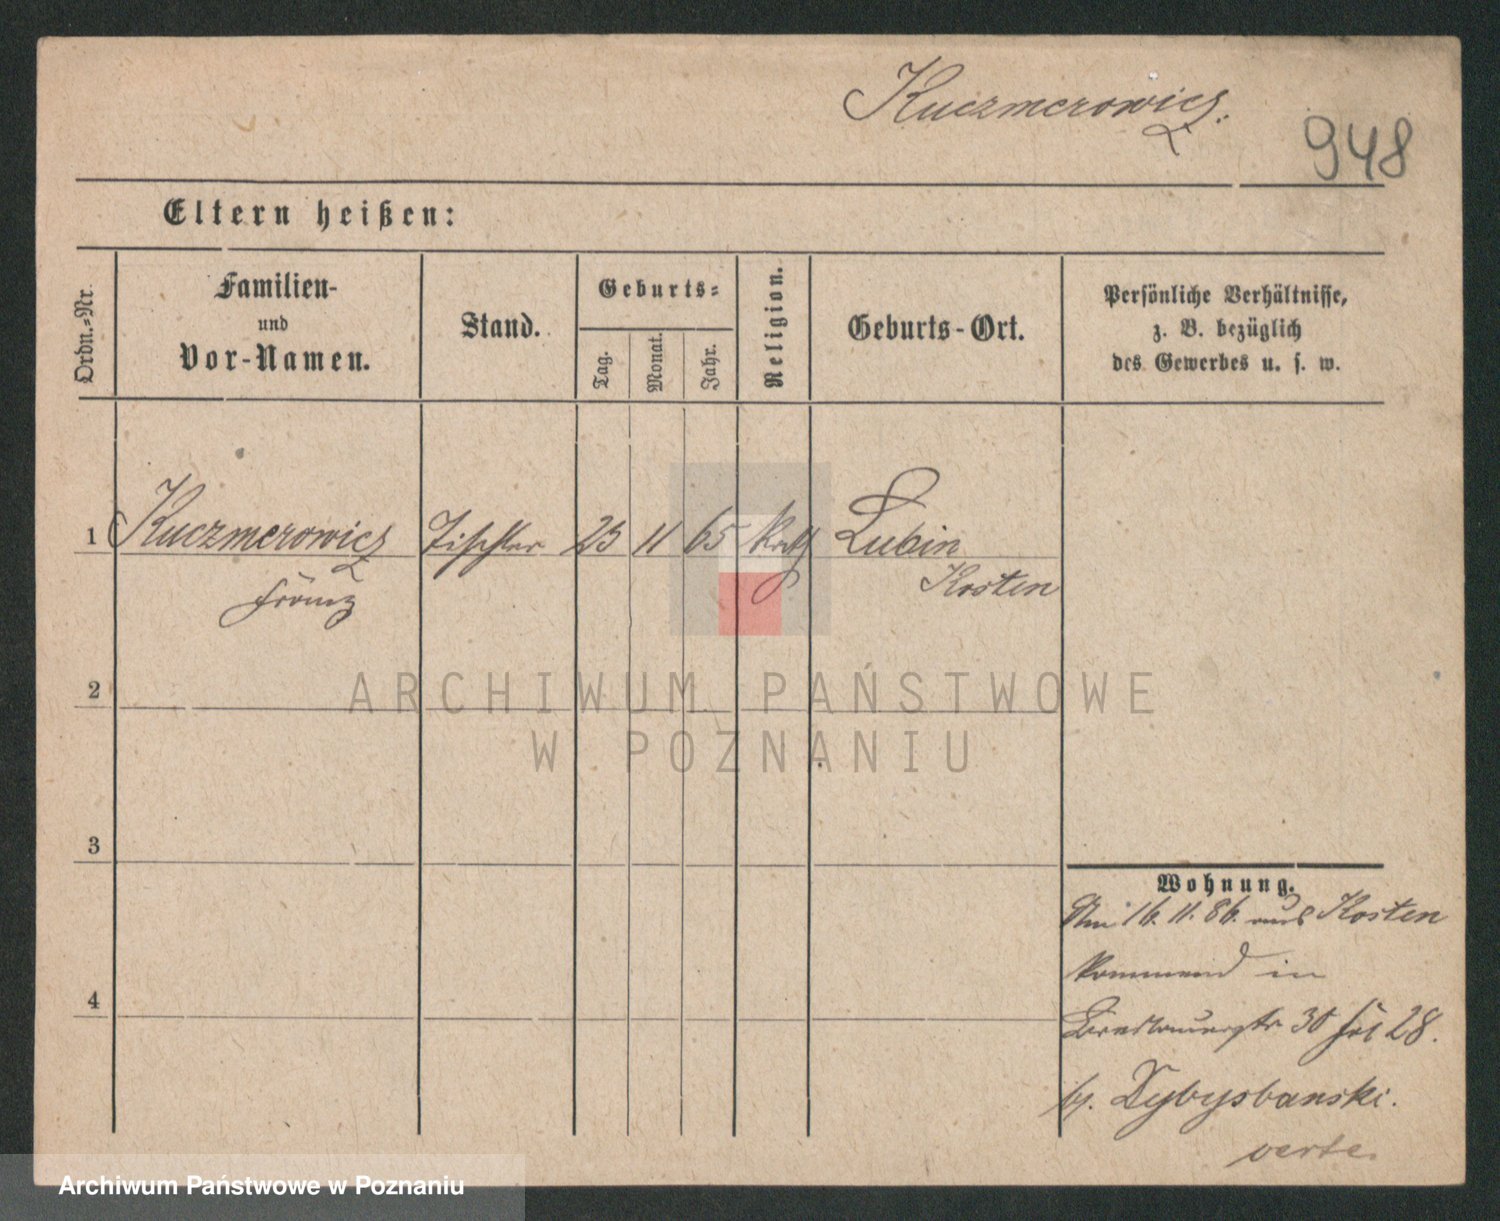 Kuczmerowicz.
948
Eltern heißen:
Ordn.-Nr.
Familien-
und
Vor-Namen.
Stand.
Geburts-
Tag.
Monat.
Jahr.
Religion.
Geburts-Ort.
Persönliche Verhältnisse,
z. B. bezüglich
des Gewerbes u. s. w.
1 Kuczmerowicz Tischler 23 11 65 kath Lubin
Franz Kosten
2
ARCHIWUM PAŃSTWOWE
W POZNANIU
3
Wohnung.
Am 16. 11. 86. aus Kosten
kommend in
4
30 28.
b.
verte.
Archiwum Państwowe w Poznaniu